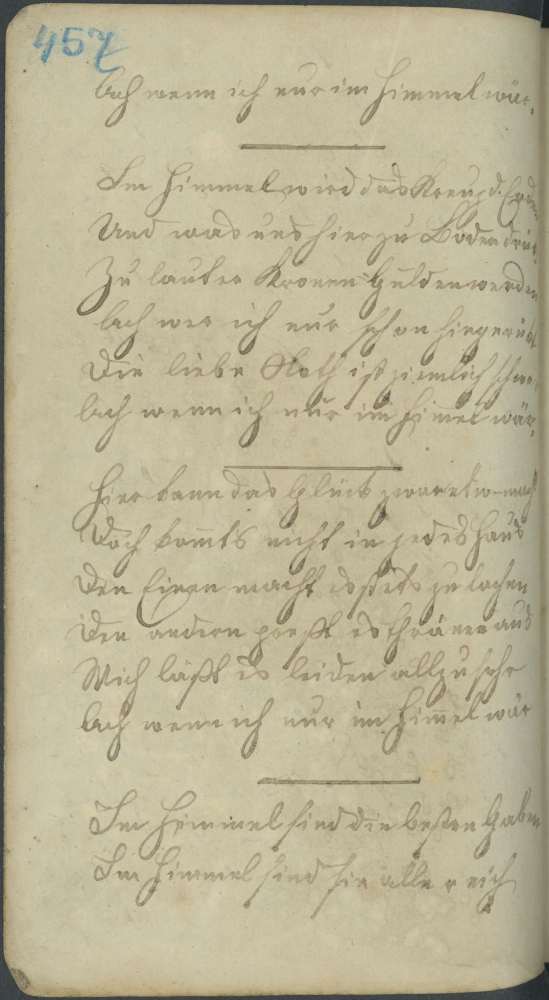 457
Ach wenn ich nur im Himmel wär.
Im Himmel wird das Kreuz d. Erden
Und was uns hier zu Boden drückt
Zu lauter Kronen Gulden werden
Ach wer ich nur schon hingerückt
Die liebe Noth ist ziemlich schwer
Ach wenn ich nur im Himel wär.
Hier kann das Glück zwar etw. mach
Doch komts nicht in jedes Haus
Den Einen macht es stets zu lachen
Den andern prest es thränen aus
Mich läßt es leiden allzu sehr
Ach wenn ich nur im Himel wär
Im Himmel sind die besten Gaben
Im Himmel sind sie alle reich